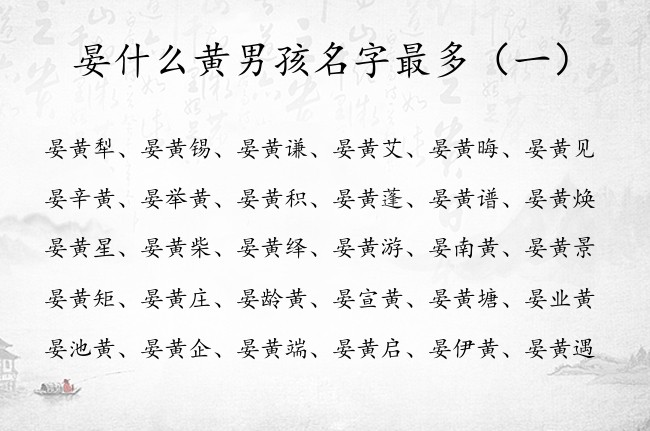 晏什么黄男孩名字最多（一）
晏黄犁、晏黄锡、晏黄谦、晏黄艾、晏黄晦、晏黄见
晏辛黄、晏举黄、晏黄积、晏黄蓬、晏黄谱、晏黄焕
晏黄星、晏黄柴、晏黄绎、晏黄游、晏南黄、晏黄景
晏黄矩、晏黄庄、晏龄黄、晏宣黄、晏黄塘、晏业黄
晏池黄、晏黄企、晏黄端、晏黄启、晏伊黄、晏黄遇